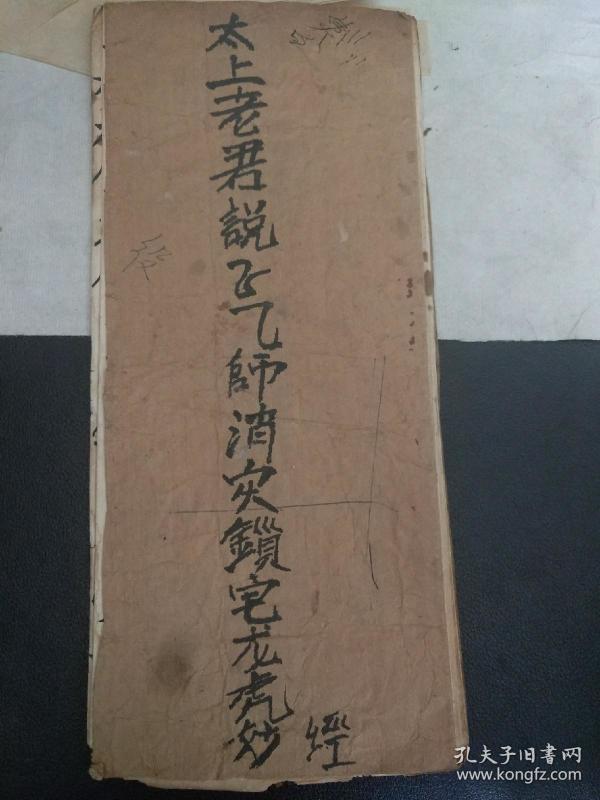 太上老君説正乙師消灾鎖宅龙虎妙
經
孔夫子旧書网
www.kongfz.com